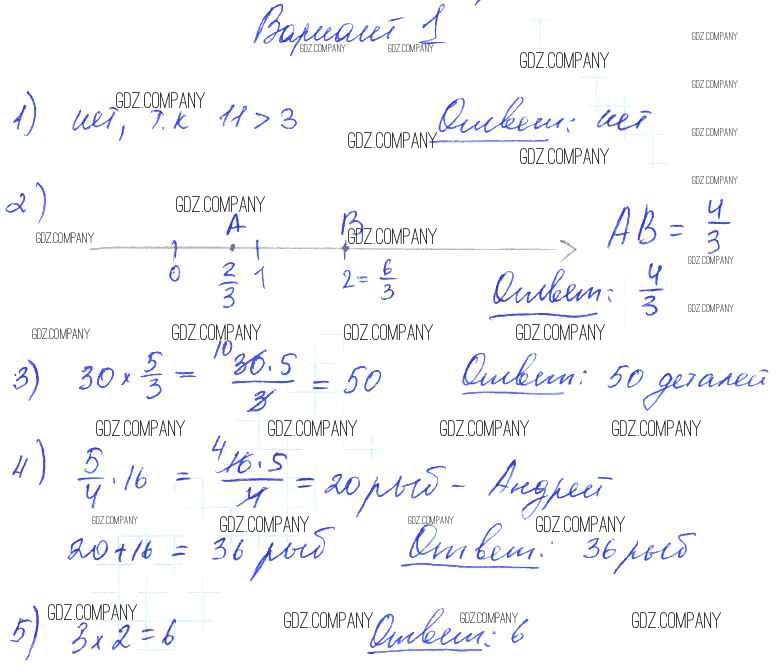 Вариант 1
GDZ.COMPANY GDZ.COMPANY GDZ.COMPANY
GDZ.COMPANY
GDZ.COMPANY
GDZ.COMPANY
1) нет, т.к 11 > 3 Ответ: нет
GDZ.COMPANY GDZ.COMPANY
GDZ.COMPANY
GDZ.COMPANY
2)
GDZ.COMPANY
A B AB = 4/3
GDZ.COMPANY GDZ.COMPANY
GDZ.COMPANY
0 2/3 1 2 = 6/3 Ответ: 4/3
GDZ.COMPANY
GDZ.COMPANY GDZ.COMPANY GDZ.COMPANY GDZ.COMPANY
3) 30 × 5/3 = 10 30·5/3 = 50 Ответ: 50 деталей
GDZ.COMPANY GDZ.COMPANY GDZ.COMPANY GDZ.COMPANY
4) 5/4 · 16 = 4 16·5/4 = 20 рыб – Андрей
GDZ.COMPANY GDZ.COMPANY GDZ.COMPANY GDZ.COMPANY
20 + 16 = 36 рыб Ответ: 36 рыб
GDZ.COMPANY GDZ.COMPANY GDZ.COMPANY GDZ.COMPANY
5) 3 × 2 = 6 Ответ: 6